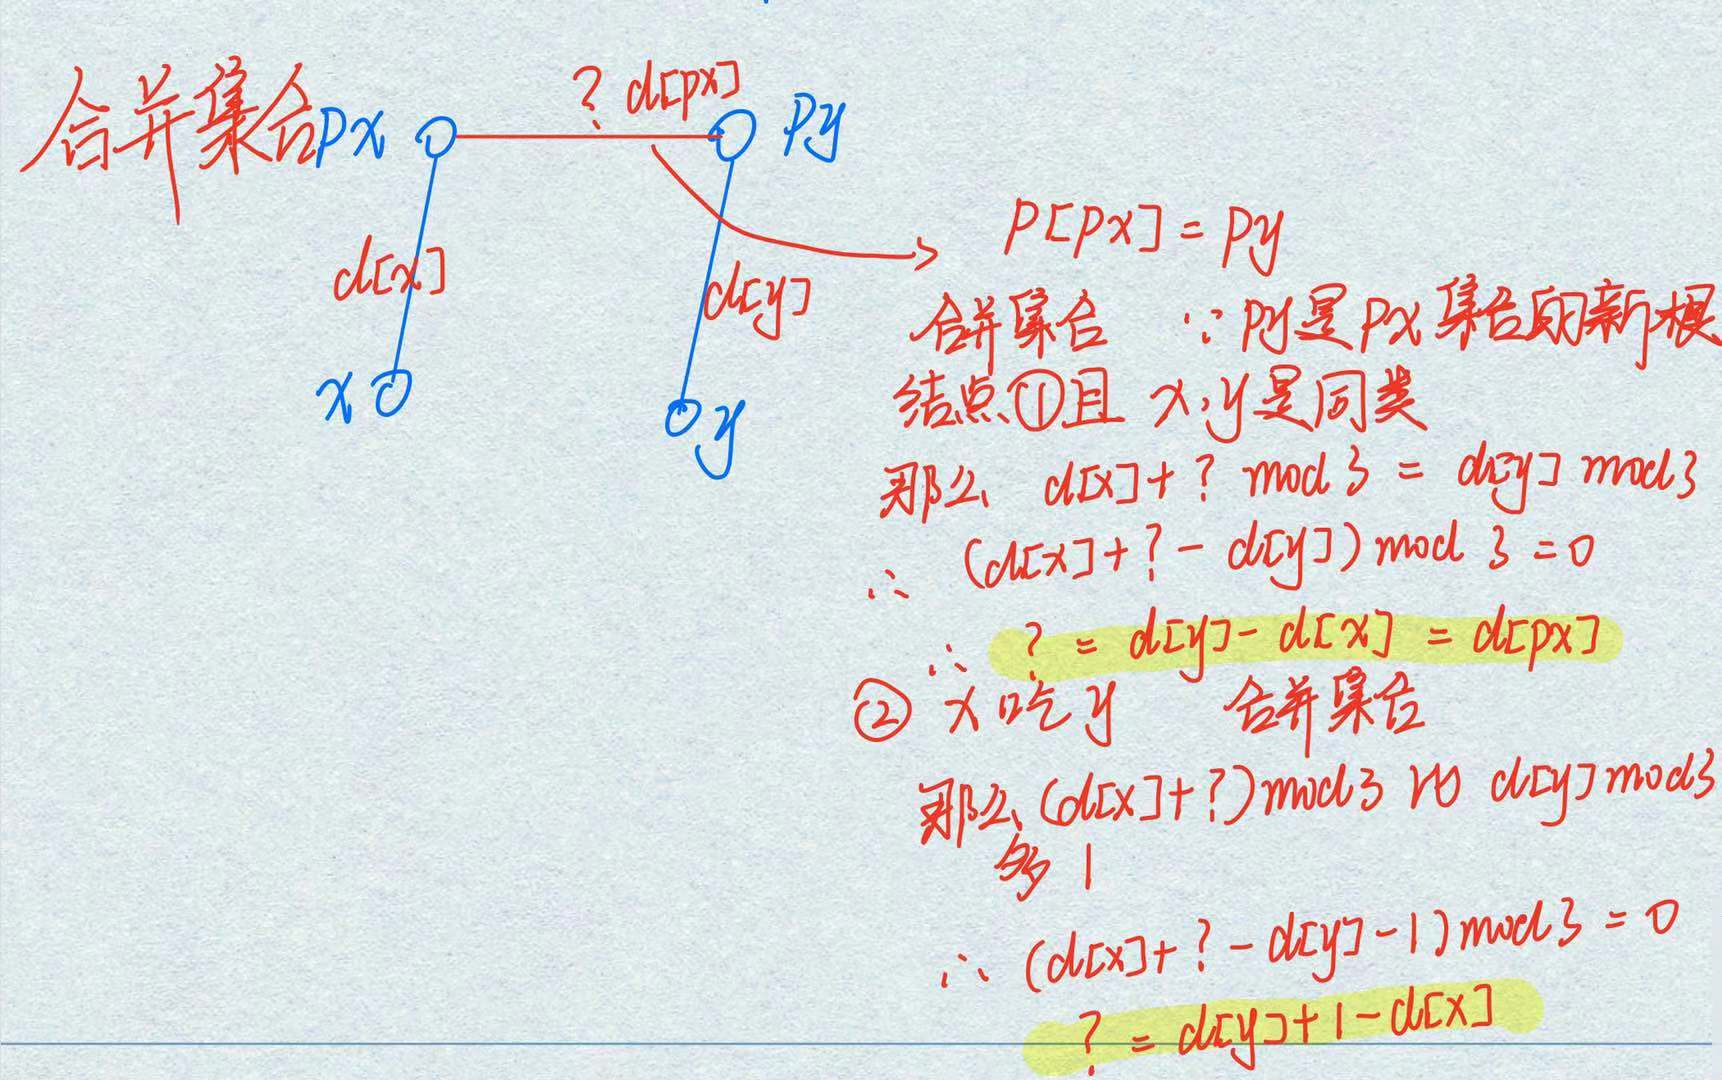 合并集合
px
? d[px]
py
d[x]
d[y]
x
y
p[px] = py
合并集合 ∵ py是px集合的新根
结点 ①且 x,y是同类
那么 d[x]+? mod 3 = d[y] mod 3
∴ (d[x]+?-d[y]) mod 3 = 0
∴ ? = d[y]-d[x] = d[px]
② x吃y 合并集合
那么 (d[x]+?) mod 3 比 d[y] mod 3
多1
∴ (d[x]+?-d[y]-1) mod 3 = 0
? = d[y]+1-d[x]